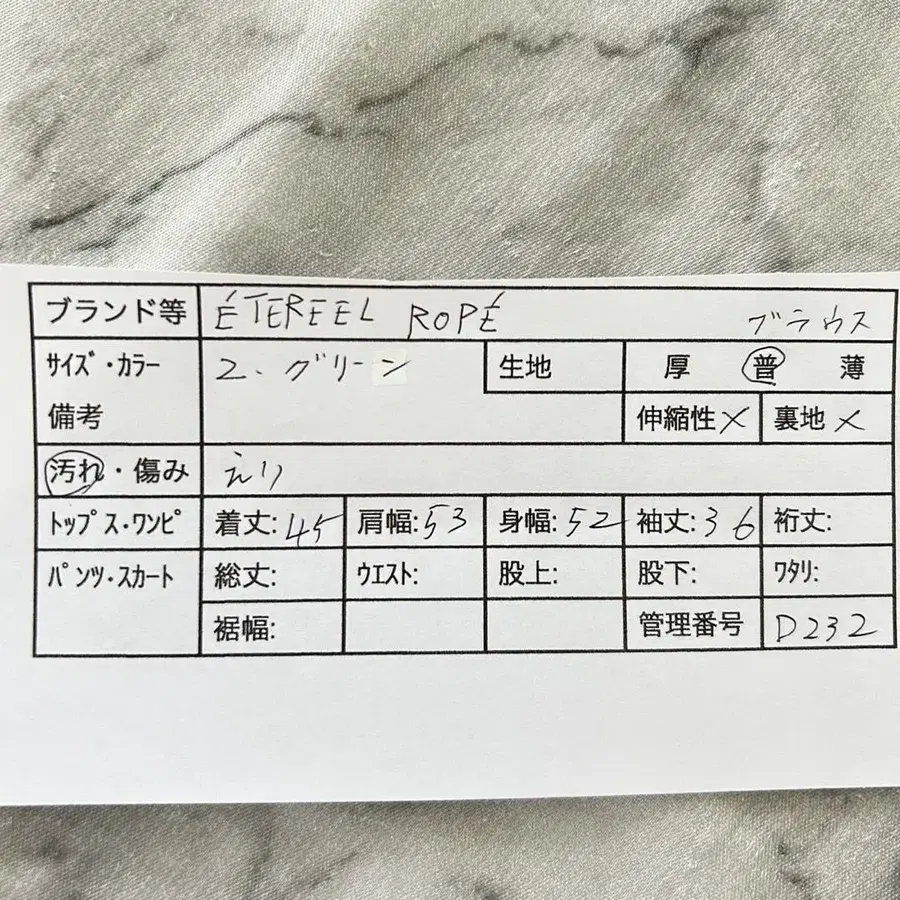 ブランド等 ÉTEREEL ROPÉ ブラウス
サイズ・カラー 2、グリーン 生地 厚 普 薄
備考 伸縮性× 裏地×
汚れ・傷み えり
トップス・ワンピ 着丈:45 肩幅:53 身幅:52 袖丈:36 裄丈:
パンツ・スカート 総丈: ウエスト: 股上: 股下: ワタリ:
裾幅: 管理番号 D232